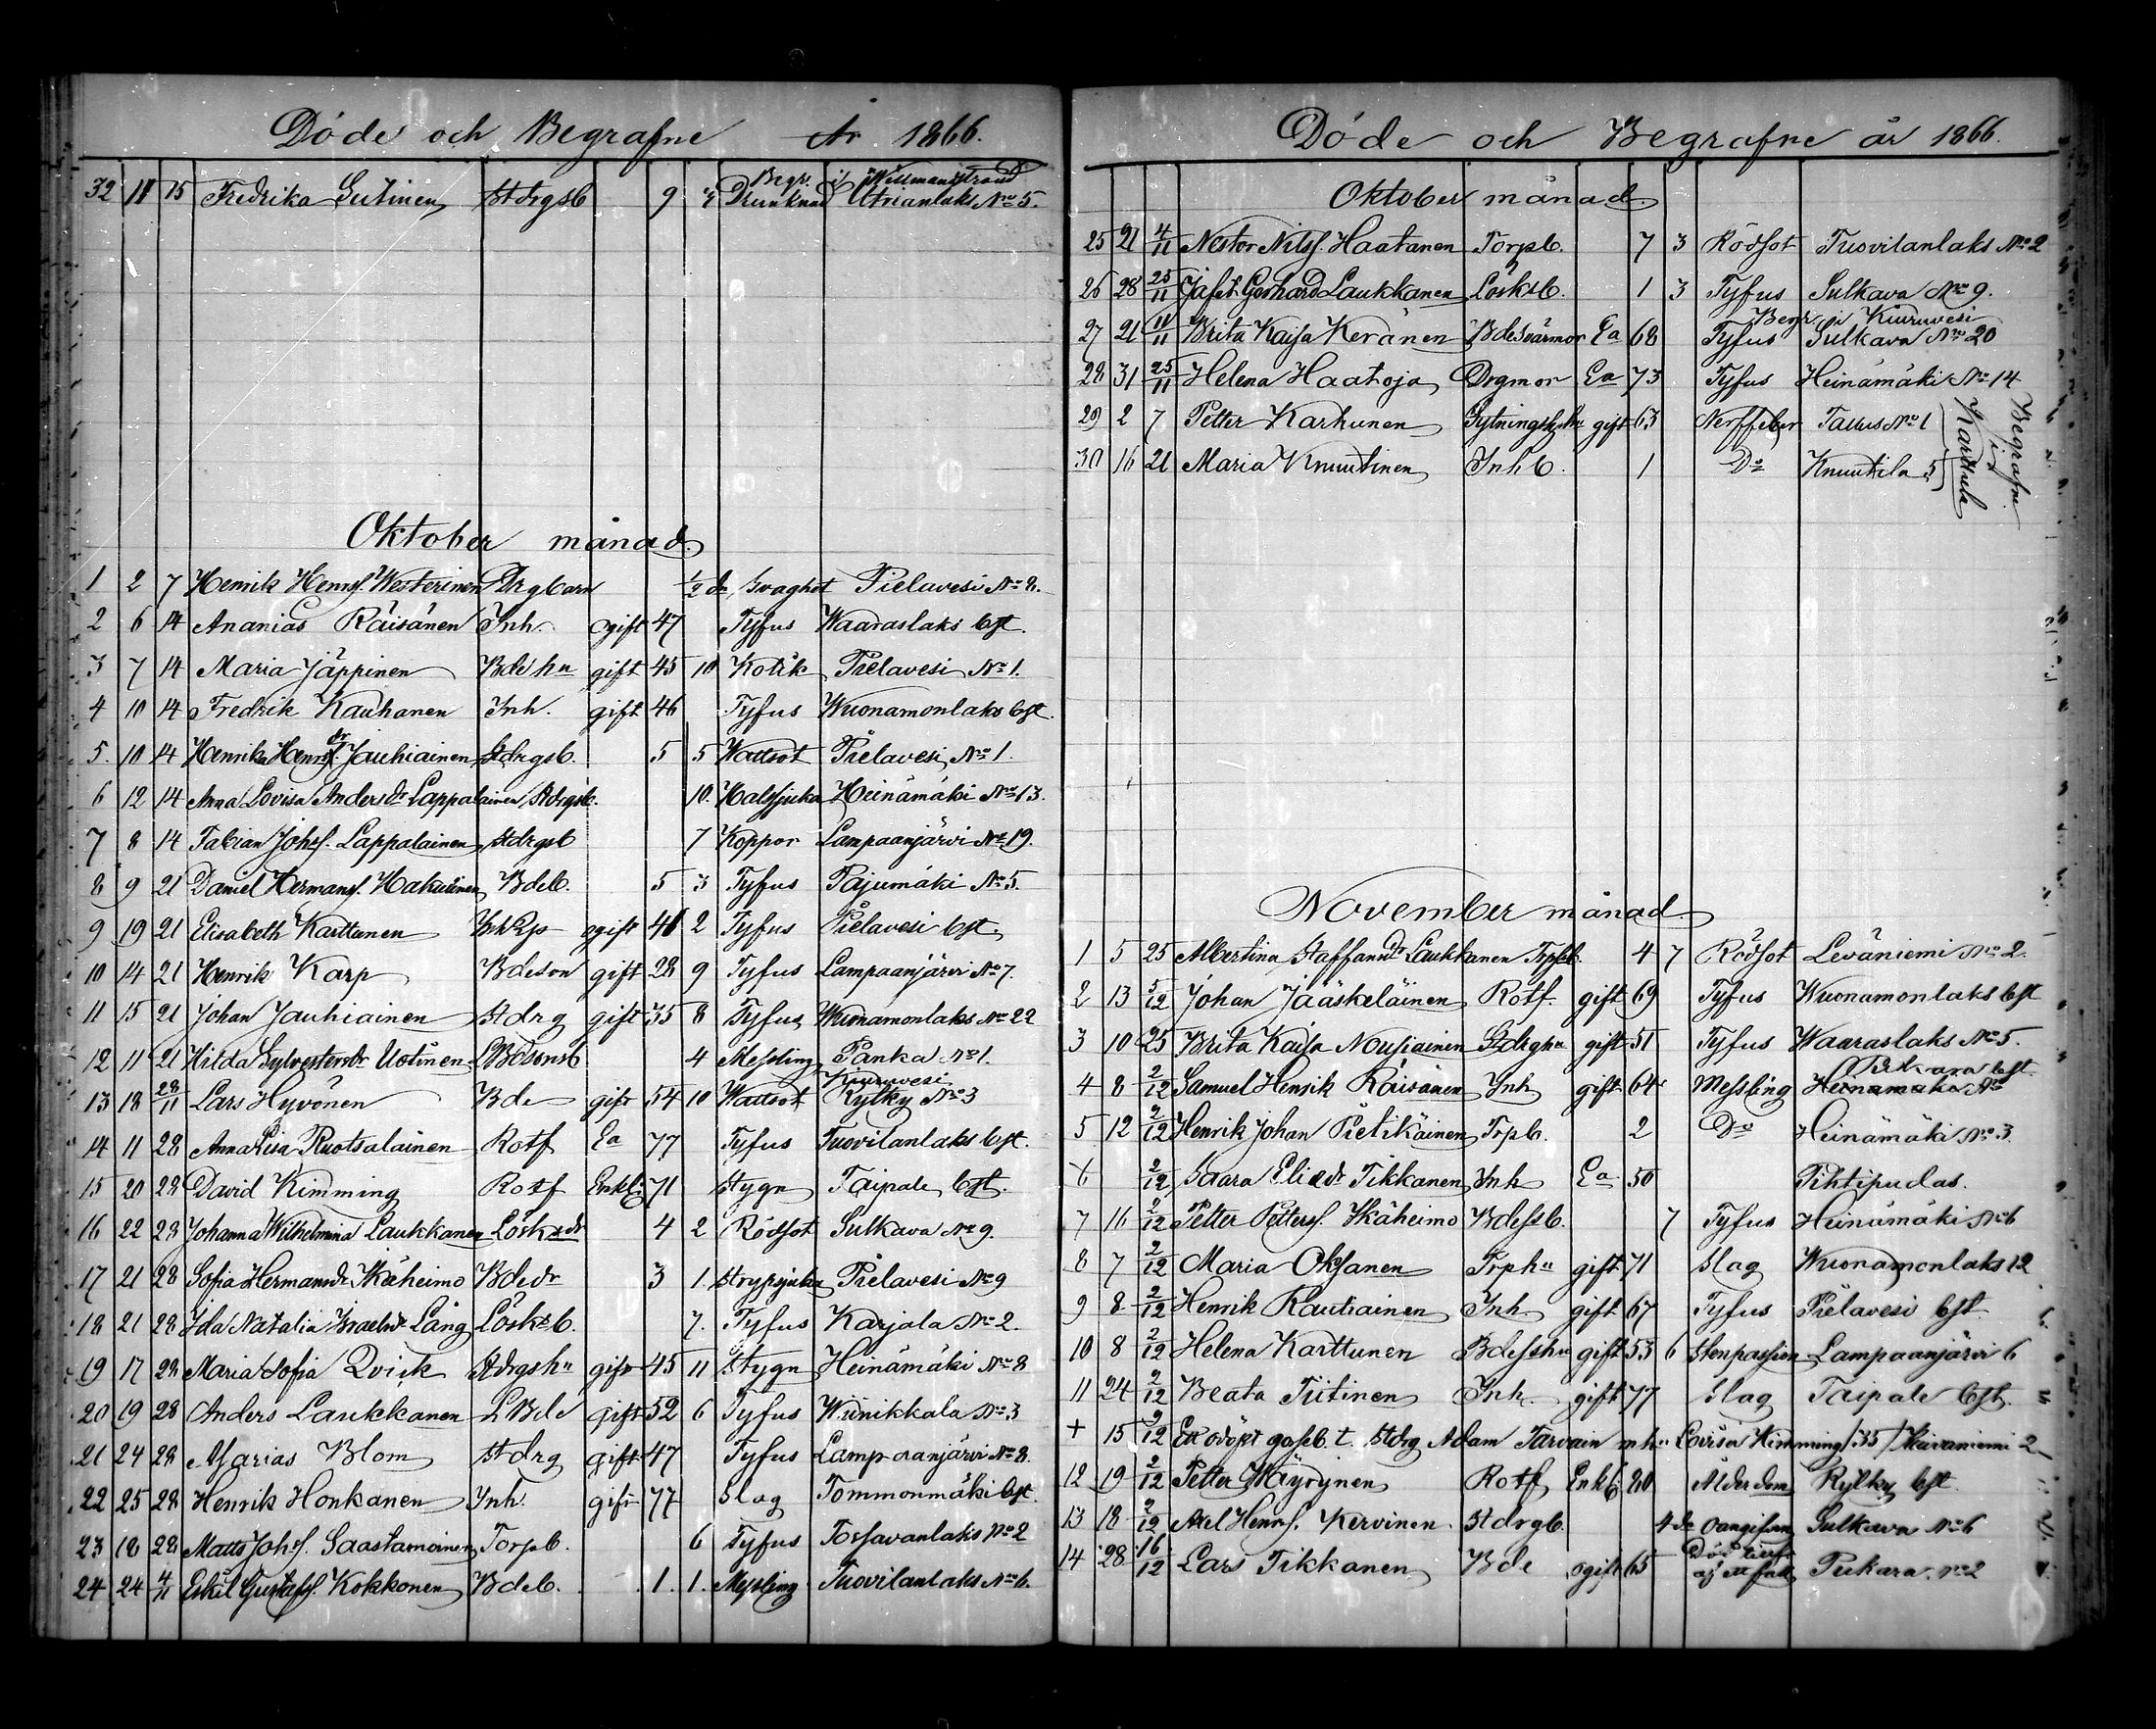 Döde och Begrafne År 1866.
Begr. i Willmanstrand
32 18 15 Fredrika Gutinen Stdrgsb 9 Drunknad Utrianlaks No 5.
Oktober månad.
1 2 7 Henrik Henrss. Westerinen Drgbarn 1/2 da Svaghet Pielavesi No 8.
2 6 14 Ananias Räisänen Inh. ogift 47 Tyfus Waaraslaks bst.
3 7 14 Maria Jäppinen Bdeshu gift 45 10 Kolik Pielavesi No 1.
4 10 14 Fredrik Kauhanen Inh. gift 46 Tyfus Wuonamonlaks bst.
5. 10 14 Henrika Henrdr Jauhiainen Stdrgsb. 5 5 Wattsot Pielavesi No 1.
6 12 14 Anna Lovisa Andersdr Lappalainen Stdrgsb. 10. Halssjuka Heinämäki No 13.
7 8 14 Fabian Johss. Lappalainen Stdrgsb 7 Koppor Lampaanjärvi No 19.
8 9 21 Daniel Hermanss. Hakulinen Bdeb. 5 3 Tyfus Pajumäki No 5.
9 19 21 Elisabeth Karttunen ogift 41 2 Tyfus Pielavesi bst.
10 14 21 Henrik Karp Bdeson gift 28 9 Tyfus Lampaanjärvi No 7.
11 15 21 Johan Jauhiainen Stdrg gift 35 8 Tyfus Wuonamonlaks No 22
12 11 21 Hilda Sylvestersdr Uotinen LBdsonsb 4 Messling Panka No 1.
Kiuruvesi
13 18 28/11 Lars Hyvönen Bde gift 54 10 Wattsot Rytky No 3
14 11 28 Anna Lisa Ruotsalainen Rotf Ea 77 Tyfus Tuovilanlaks bst.
15 20 28 David Kimming Rotf Enkl. 71 Stygn Taipale bst.
16 22 28 Johanna Wilhelmina Laukkanen Löskdr 4 2 Rödsot Sulkava No 9.
17 21 28 Sofia Hermansdr Ikäheimo Bdedr 3 1. Strypsjuka Pielavesi No 9
18 21 28 Ida Natalia Israelsdr Lång Löskb. 7. Tyfus Karjala No 2.
19 17 28 Maria Sofia Qvick Stdrgshu gift 45 11 Stygn Heinämäki No 8
20 19 28 Anders Laukkanen LBde gift 52 6 Tyfus Wiinikkala No 3
21 24 28 Asarias Blom Stdrg gift 47 Tyfus Lampaanjärvi No 8.
22 25 28 Henrik Honkanen Inh. gift 77 Slag Tommonmäki bst.
23 18 28 Matts Johss. Saastamoinen Torpb. 6 Tyfus Torsavanlaks No 2
24 24 4/11 Eskil Gustafss. Kokkonen Bdeb. 1. 1. Messling Tuovilanlaks No 6.
Döde och Begrafne år 1866.
Oktober månad.
25 21 4/11 Nestor Nilss. Haatanen Torpb. 7 3 Rödsot Tuovilanlaks No 2
26 28 25/11 Jafet Gerhard Laukkanen Lösksb. 1 3 Tyfus Sulkava No 9.
Begr. i Kiuruvesi
27 21 11/11 Brita Kajsa Keränen Bdesvärmor Ea 68 Tyfus Sulkava No 20
28 31 25/11 Helena Haatoja Drgmor Ea 73 Tyfus Heinämäki No 14
29 2 7 Petter Karhunen gift 63 Nerffeber Tallus No 1
30 16 21 Maria Knuutinen Inhb. 1 Do Knuutila 5
Begrafne i Karttula
November månad.
1 5 25 Albertina Staffansdr Laukkanen Trpsb. 4 7 Rödsot Leväniemi No 2.
2 13 5/12 Johan Jääskeläinen Rotf. gift 69 Tyfus Wuonamonlaks bst
3 10 25 Brita Kaisa Nousiainen Stdrghu gift 51 Tyfus Waaraslaks No 5.
4 8 2/12 Samuel Henrik Räisänen Inh gift 64 Messling Heinämäki No
5 12 2/12 Henrik Johan Pietikäinen Trpb. 2 Do Heinämäki No 3.
+ 2/12 Saara Eliedr Tikkanen Inh Ea 50 Pihtipudas.
7 16 2/12 Petter Petterss. Ikäheimo Bdessb. 7 Tyfus Heinämäki No 6
8 7 2/12 Maria Oksanen Trphu gift 71 Slag Wuonamonlaks 12
9 8 2/12 Henrik Rautiainen Inh. gift 67 Tyfus Pielavesi bst.
10 8 2/12 Helena Karttunen Bdesshu gift 53 6 Stenpassion Lampaanjärvi 6
11 24 2/12 Beata Tiitinen Inh. gift 77 Slag Taipale bst.
+ 15 2/12 Ett odöpt gossb. t. Stdrg Adam Tarvain m hu Lovisa Kimming /35/ Kaivaniemi 2
12 19 2/12 Petter Mäyrynen Rotf Enkl 80 Ålderdom Rytky bst.
13 18 2/12 Axel Henrs. Kervinen Stdrgb. 4 da Oangifven Sulkava No 6
14 28 16/12 Lars Tikkanen Bde ogift 65 Död af ett fall Piekara No 2